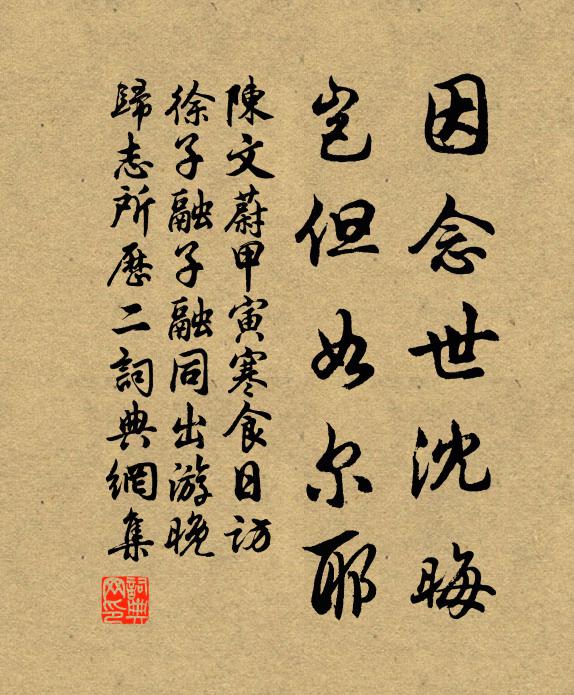 因念世沈晦
岂但如尔耶
陳文蔚甲寅寒食日访
徐子融子融同出游晚
歸志所歷二詞典網集
詞典
网印